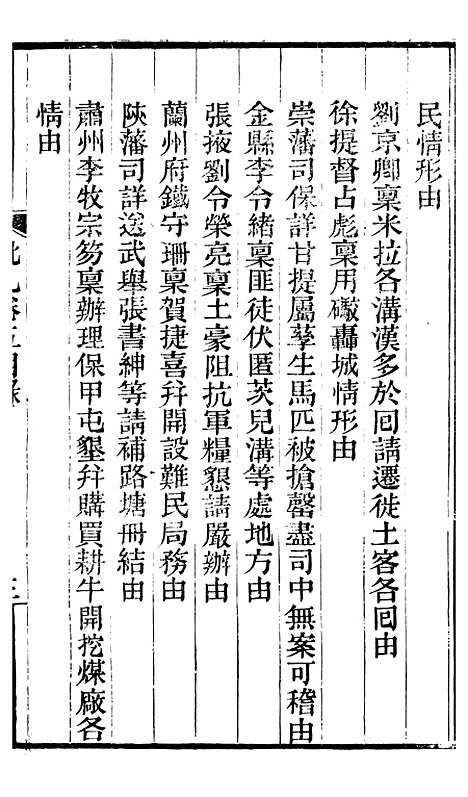 民情形由
劉京卿稟米拉各溝漢多於回請遷徙土客各回由
徐提督占彪稟用礮轟城情形由
崇藩司保詳甘提屬孳生馬匹被搶罄盡司中無案可稽由
金縣李令緒稟匪徒伏匿茨兒溝等處地方由
張掖劉令榮亮稟土豪阻抗軍糧懇請嚴辦由
蘭州府鐵守珊稟賀捷喜幷開設難民局務由
陝藩司詳送武舉張書紳等請補路塘冊結由
肅州李牧宗笏稟辦理保甲屯墾幷購買耕牛開挖煤廠各
情由
批札卷五目錄
三